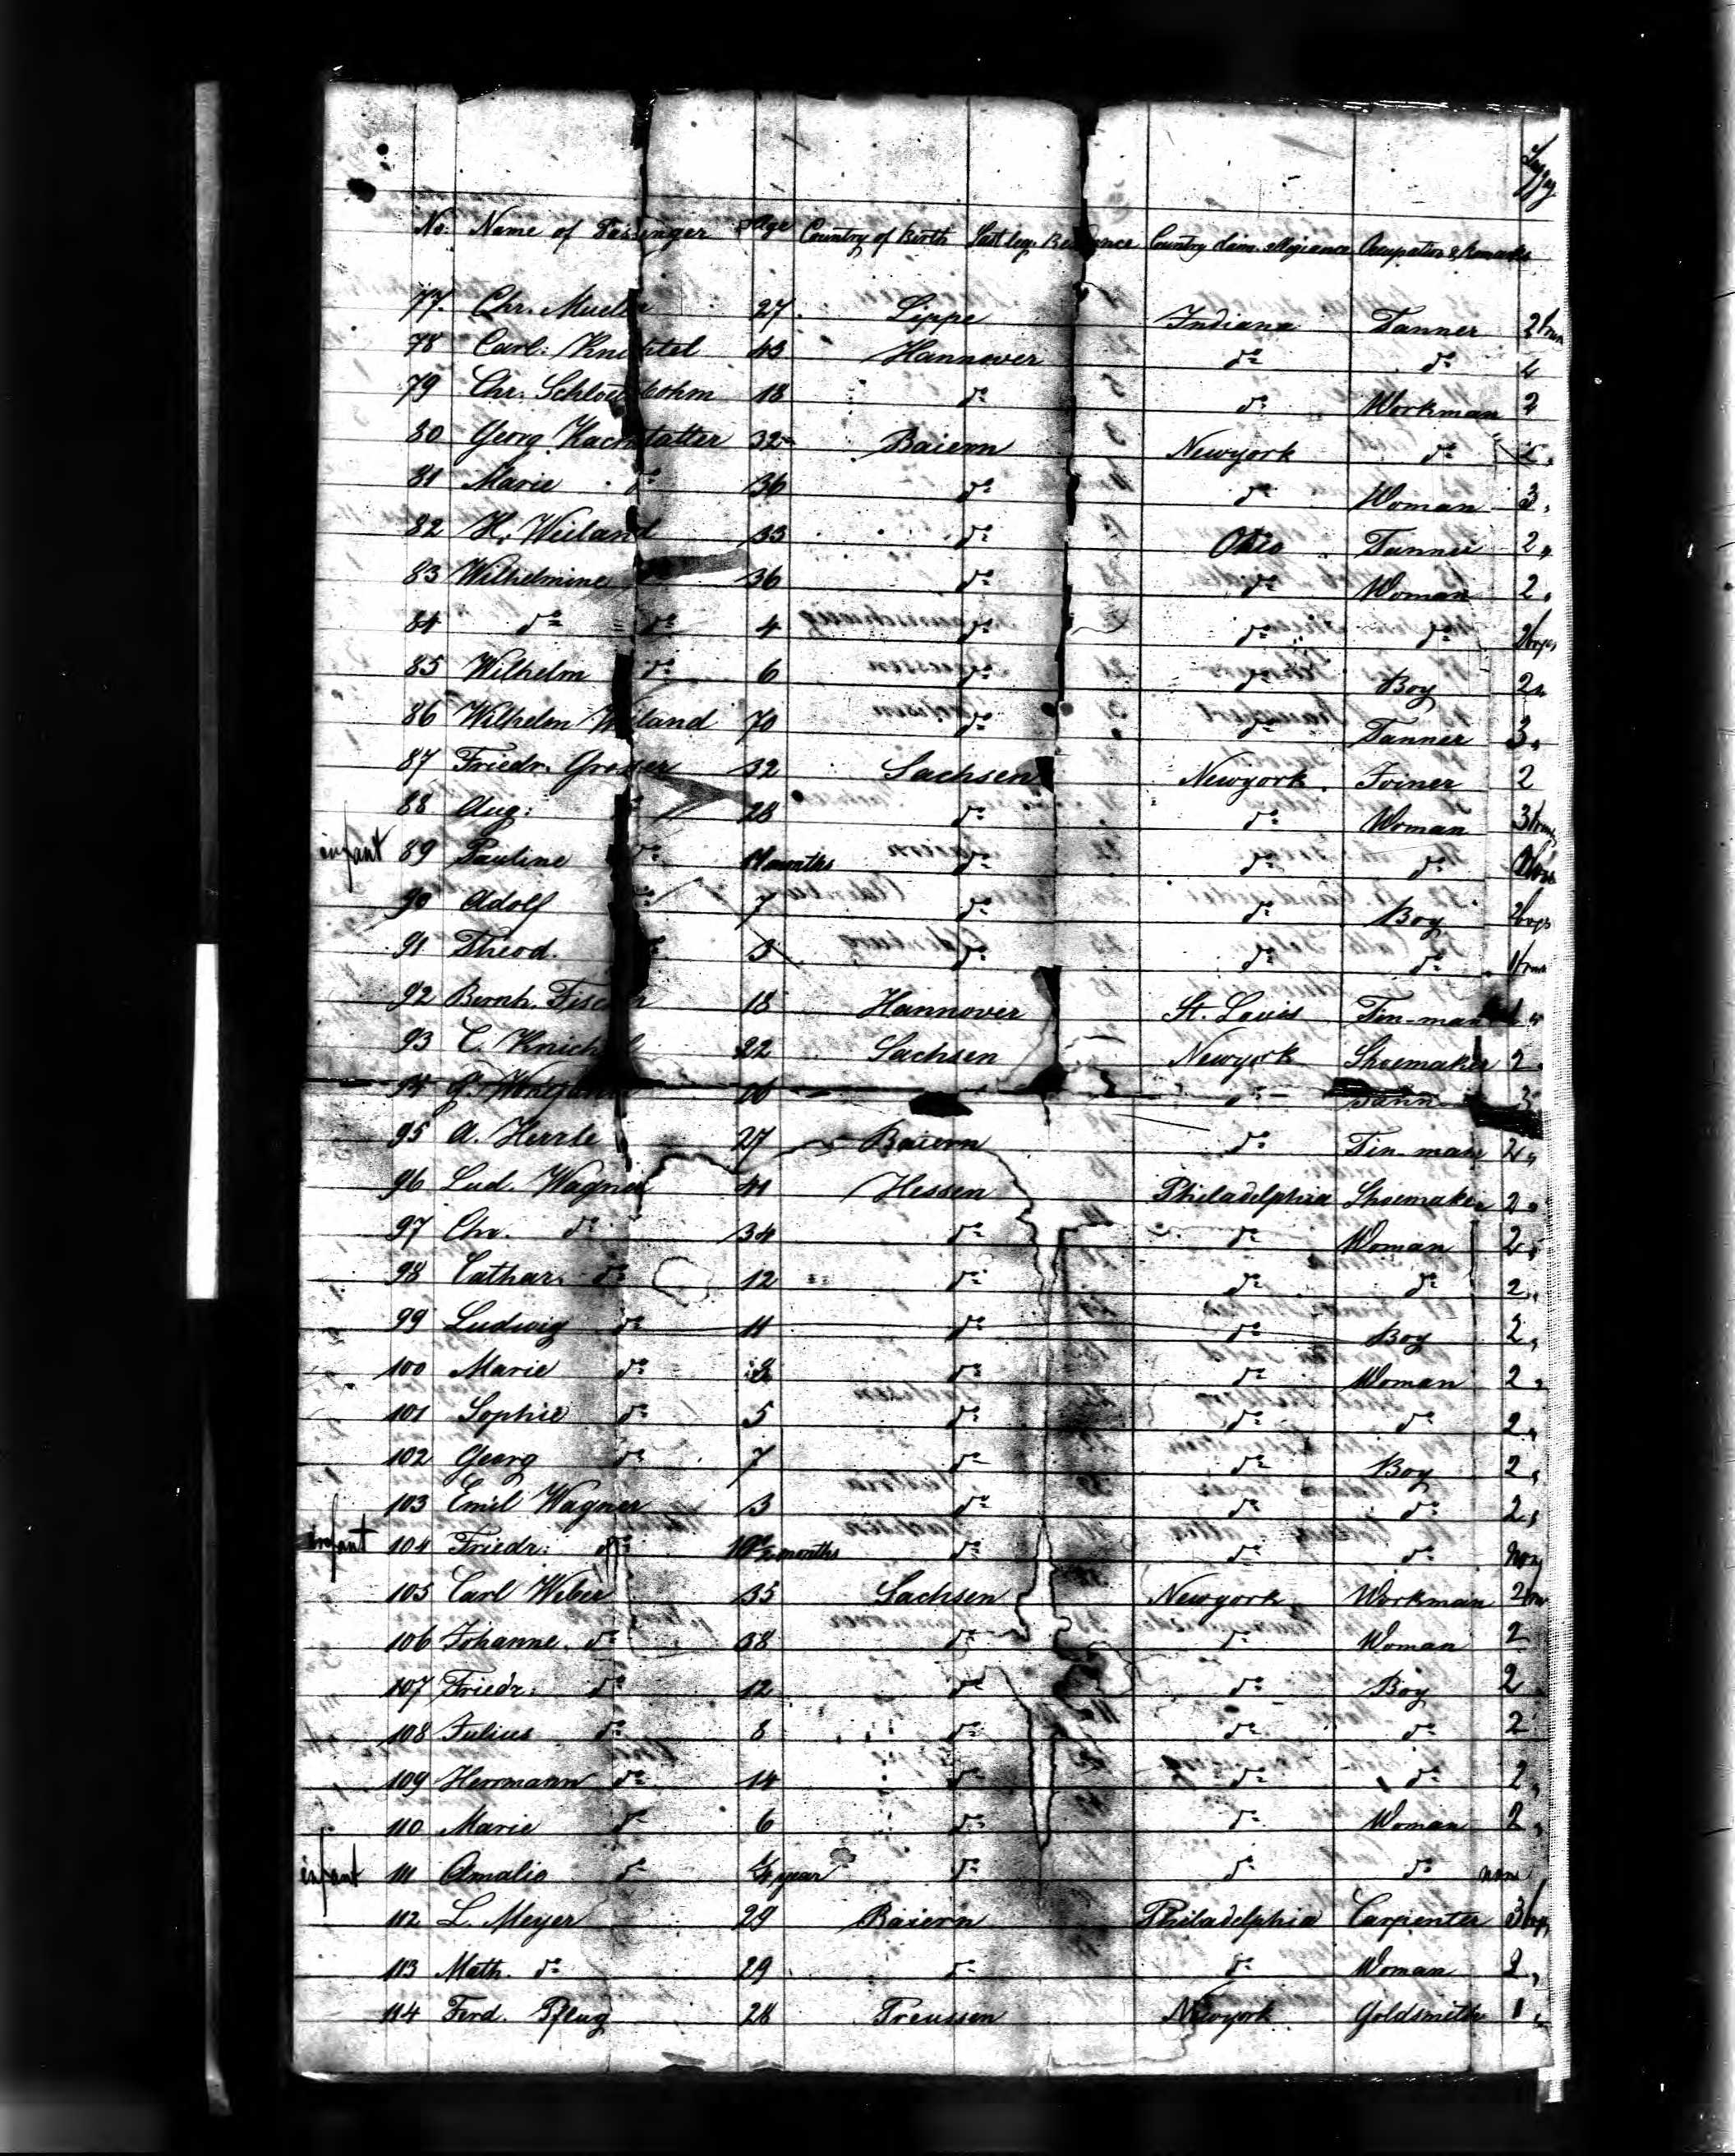 Luggage
No. Name of Passenger Age Country of Birth Last leg. Residence Country claim. allegiance Occupation & Remarks
77. Chr. Mueller 27. Lippe Indiana Tanner 2
78 Carl 43 Hannover do do
79 Chr. 18 do do Workman 2
80 Georg 32 Baiern Newyork do
81 Marie do 36 do do Woman 3
82 H. Weiland 33 do Ohio 2
83 Wilhelmine 36 do do Woman 2
84 do do 4 do do do
85 Wilhelm do 6 do do Boy 2
86 Wilhelm Weiland 70 do do Tanner 3
87 Friedr. 32 Sachsen Newyork Joiner 2
88 Aug: 28 do do Woman 3
infant 89 Pauline do months do do do
90 Adolf 7 do do Boy
91 Theod. 3 do do do 1
92 Bernh. Fischer 18 Hannover St. Louis Tin-man
93 C. 22 Sachsen Newyork Shoemaker 2
94 3
95 A. Herrle 27 Baiern do Tin-man
96 Lud. Wagner 41 Hessen Philadelphia Shoemaker 2
97 Chr. do 34 do do Woman 2
98 Cathar. do 12 do do do 2
99 Ludwig do 11 do do Boy 2
100 Marie do do do Woman 2
101 Sophie do 5 do do do 2
102 Georg do 7 do do Boy 2
103 Emil Wagner 3 do do do 2
infant 104 Friedr: do months do do do
105 Carl Weber 35 Sachsen Newyork Workman 2
106 Johanne do 38 do do Woman 2
107 Friedr: do 12 do do Boy 2
108 Julius do 8 do do do 2
109 Herrmann do 14 do do do 2
110 Marie do 6 do do Woman 2
infant 111 Amalie do 1/4 year do do do non
112 L. Meyer 29 Baiern Philadelphia Carpenter 3
113 Math. do 29 do do Woman 2
114 Ferd. Pflug 28 Preussen Newyork Goldsmith 1